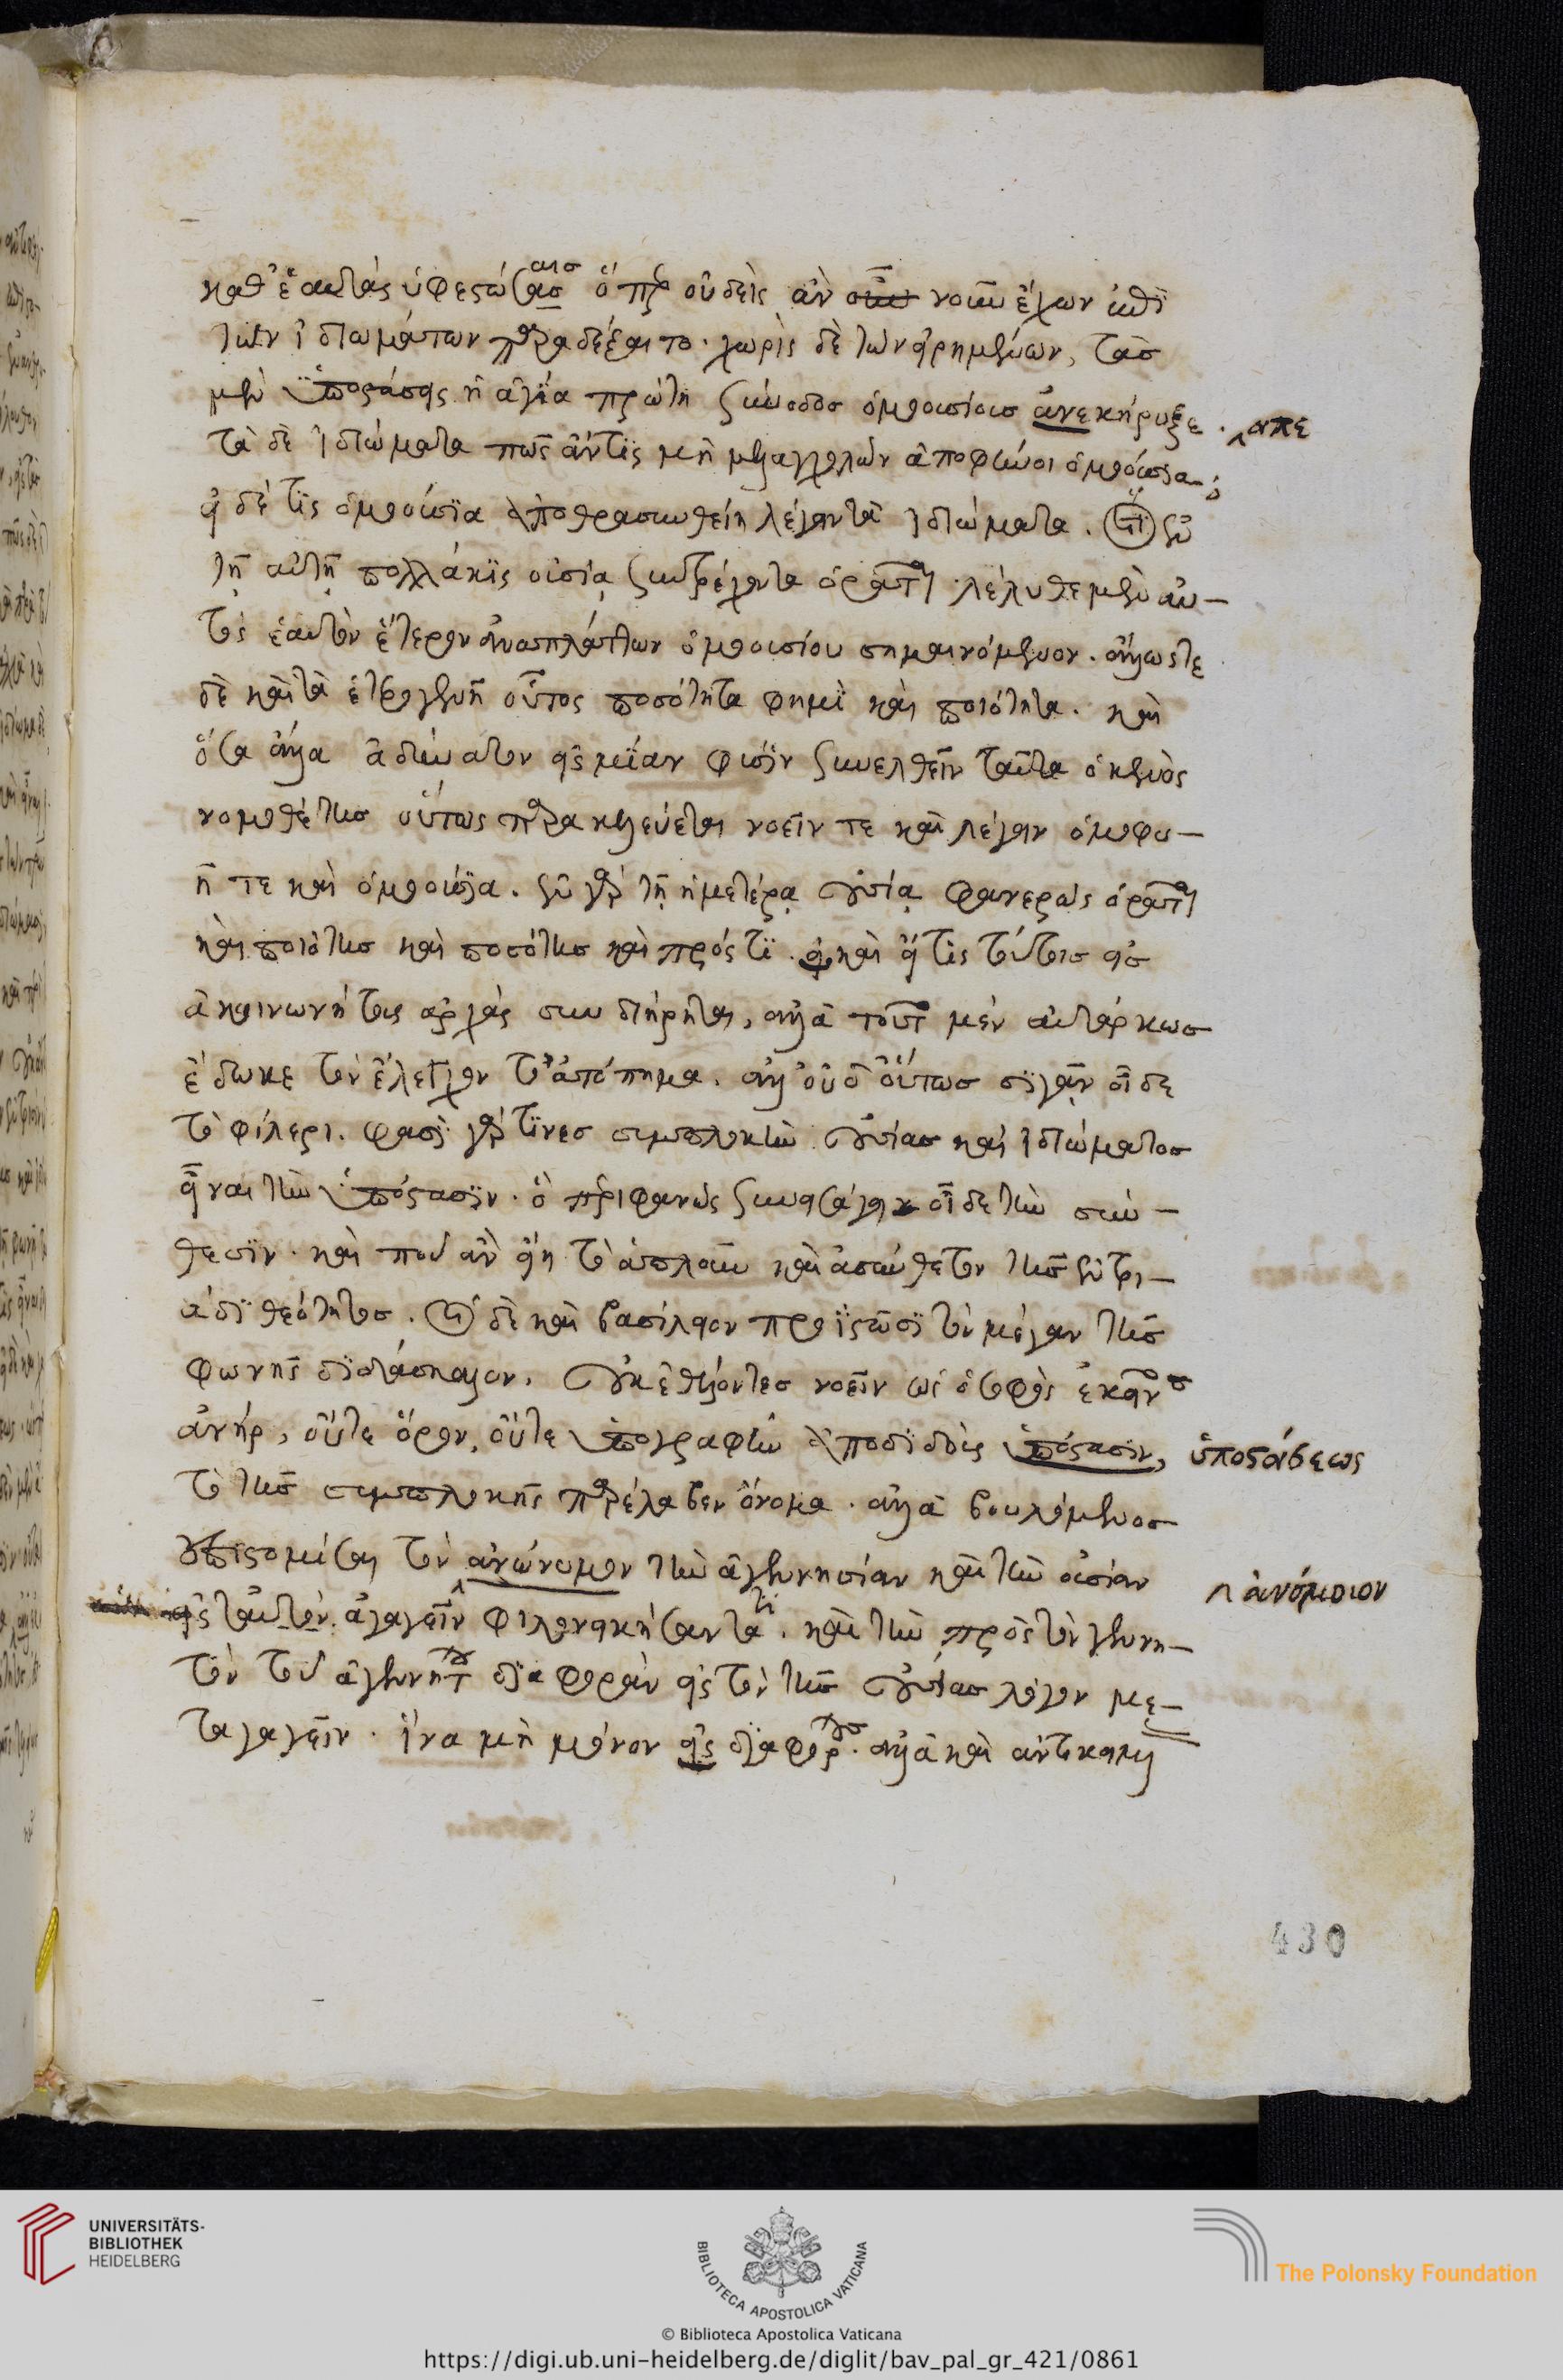 καθ' ἑαυτὰς ὑφεστώσας αις ὅπερ οὐδεὶς ἂν νοῦν ἔχων ἐπὶ
τῶν ἰδιωμάτων παραδέξαιτο. χωρὶς δὲ τῶν εἰρημένων, τὰσ
μὲν ὑποστάσεις ἡ ἁγία πρώτη σύνοδοσ ὁμοουσίουσ ἀνεκήρυξε. απε
τὰ δὲ ἰδιώματα πῶς ἄν τις μὴ μελαγχολῶν ἀποφαίνοι ὁμοούσια;
εἰ δέ τις ὁμοούσια ἀποθρασυνθείη λέγειν τὰ ἰδιώματα. ὅτι ἐν
τῇ αὐτῇ πολλάκις οὐσίᾳ συντρέχοντα ὁρᾶται. λέληθε μὲν αὐ-
τὸς ἑαυτὸν ἕτερον ἀναπλάττων ὁμοουσίου σημαινόμενον. ἄλλως τε
δὲ καὶ τὰ ἑτερογενῆ οὗτος ποσότητα φημὶ καὶ ποιότητα. καὶ
ὅσα ἄλλα ἀδύνατον εἰς μίαν φύσιν συνελθεῖν ταῦτα ὁ κενὸς
νομοθέτησ οὕτως παρακελεύεται νοεῖν τε καὶ λέγειν ὁμοφυ-
ῆ τε καὶ ὁμοούσια. ἐν γὰρ τῇ ἡμετέρᾳ οὐσίᾳ φανερῶς ὁρᾶται
καὶ ποιότησ καὶ ποσότησ καὶ πρός τι. καὶ εἴ τις τούτοισ εἰσ
ἀκοινωνήτους ἀρχὰς συνδιῄρηται, ἀλλὰ τοῦτο μὲν αὐτάρκωσ
ἔδωκε τὸν ἔλεγχον τὸ ἀτόπημα. ἀλλ' οὐδ' οὕτωσ σιγᾶν οἶδε
τὸ φίλερι. φασὶ γάρ τινεσ συμπλοκὴν οὐσίασ καὶ ἰδιώματοσ
εἶναι τὴν ὑπόστασιν. ὃ περιφανῶς συνεισάγειν οἶδε τὴν σύν-
θεσιν. καὶ ποῦ ἂν εἴη τὸ ἁπλοῦν καὶ ἀσύνθετον τῆσ ἐν τρι-
άδι θεότητοσ. οἱ δὲ καὶ βασίλειον προϊστῶσι τὸν μέγαν τῆσ
φωνῆς διδάσκαλον, οὐκ ἐθέλοντεσ νοεῖν ὡς ὁ σοφὸς ἐκεῖνοσ
ἀνήρ, οὔτε ὅρον, οὔτε ὑπογραφὴν ἀποδιδοὺς ὑπόστασιν, ὑποστάσεως
τὸ τῆσ συμπλοκῆς παρέλαβεν ὄνομα. ἀλλὰ βουλόμενοσ
ἐπιστομίσαι τὸν ἀνώνυμον τὴν ἀγεννησίαν καὶ τὴν οὐσίαν ἀνόμοιον
εἰς ταυτὸν ἀγαγεῖν φιλονεικήσαντα τι. καὶ τὴν πρὸς τὸν γεννη-
τὸν τοῦ ἀγεννήτου διαφορὰν εἰς τὸν τῆσ οὐσίασ λόγον με-
ταγαγεῖν. ἵνα μὴ μόνον εἰς διαφόρουσ. ἀλλὰ καὶ ἀντικειμέ
430
UNIVERSITÄTS-
BIBLIOTHEK
HEIDELBERG
BIBLIOTECA APOSTOLICA VATICANA
The Polonsky Foundation
© Biblioteca Apostolica Vaticana
https://digi.ub.uni-heidelberg.de/diglit/bav_pal_gr_421/0861